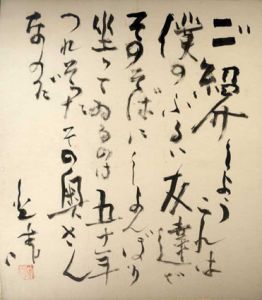 ご紹介しよう これは
僕のふるい友達で
そのそばにしよんぼり
坐つてゐるのは 五十年
つれそつたその奥さん
なのだ